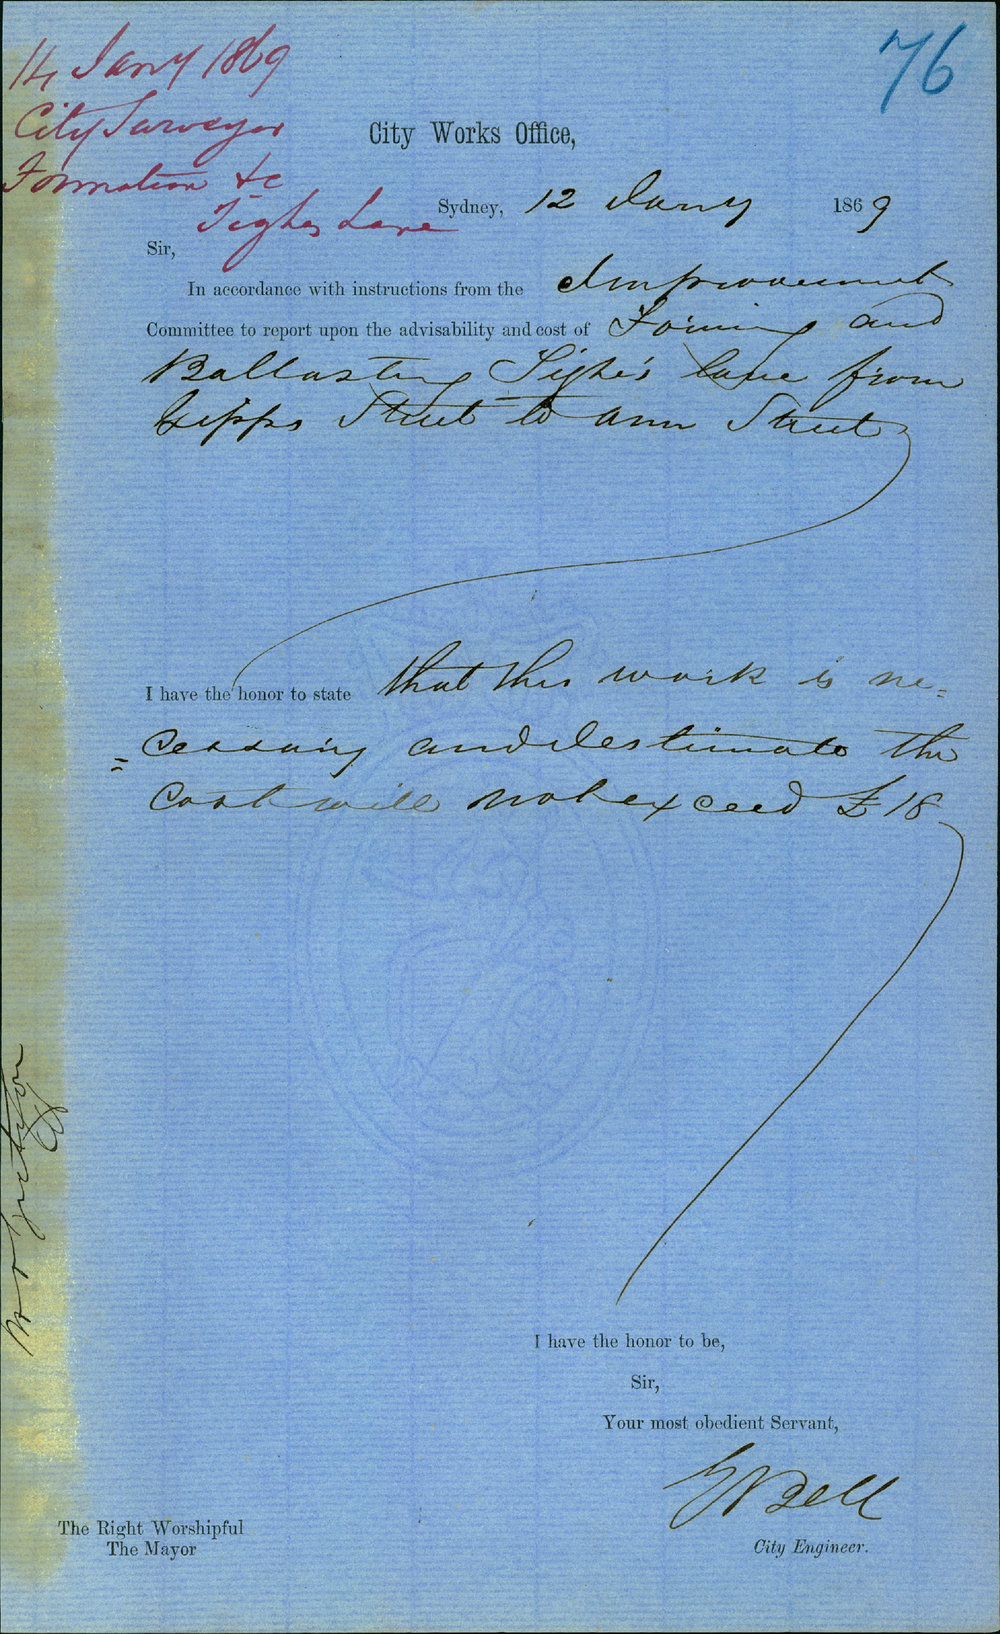 76
14 Jany 1869
City Surveyor
Formation &c
Tighes Lane
City Works Office,
Sydney, 12 Jany 1869
Sir,
In accordance with instructions from the Improvement
Committee to report upon the advisability and cost of Forming and
Ballasting Tighe's lane from
Gipps Street to Ann Street
I have the honor to state that this work is ne=
=cessary and I estimate the
Cost will not exceed £18
I have the honor to be,
Sir,
Your most obedient Servant,
E Bell
City Engineer.
The Right Worshipful
The Mayor